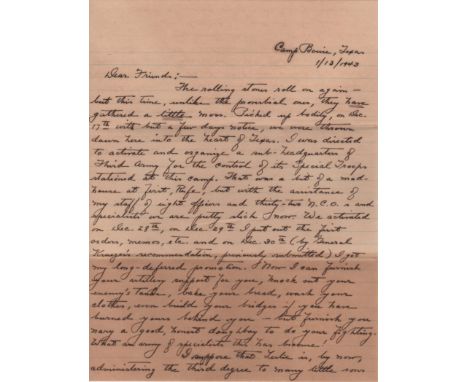 Camp Bowie, Texas
1/13/1943
Dear Friends:—
The rolling stones roll on again—
but this time, unlike the proverbial ones, they have
gathered a little moss. Picked up bodily, on Dec.
17th with but a few days notice, we were thrown
down here into the heart of Texas. I was directed
to activate and organize a sub-headquarters of
Third Army for the control of its Special Troops
stationed at this camp. That was a bit of a mad-
house at first, but with the assistance of
my staff of eight officers and thirty-two N.C.O.s and
specialists we are pretty slick now. We activated
on Dec. 28th, on Dec. 29th I put out the first
orders, memos, etc. and on Dec. 30th (by General
Krueger's recommendation, previously submitted) I got
my long-deferred promotion. Now I can furnish
your artillery support for you, knock out your
enemy's tanks, bake your bread, wash your
clothes, even build your bridges if you have
burned yours behind you — but furnish you
nary a good, honest doughboy to do your fighting.
What an army of specialists this has become!
I suppose that is, by now,
administering the third degree to many little sons